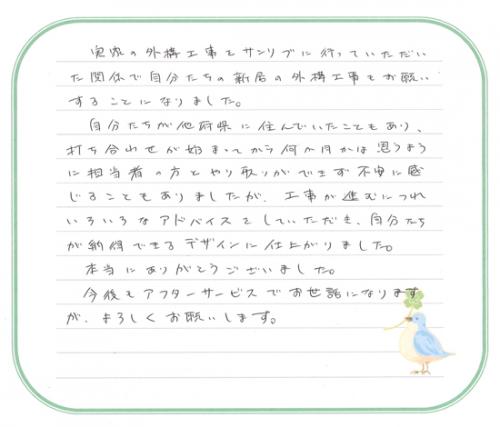 実家の外構工事をサンリブに行っていただい
た関係で自分たちの新居の外構工事もお願い
することになりました。
自分たちが他府県に住んでいたこともあり、
打ち合わせが始まってから何か月かは思うよう
に担当者の方とやり取りができず不安に感
じることもありましたが、工事が進むにつれ
いろいろなアドバイスをしていただき、自分たち
が納得できるデザインに仕上がりました。
本当にありがとうございました。
今後もアフターサービスでお世話になります
が、よろしくお願いします。